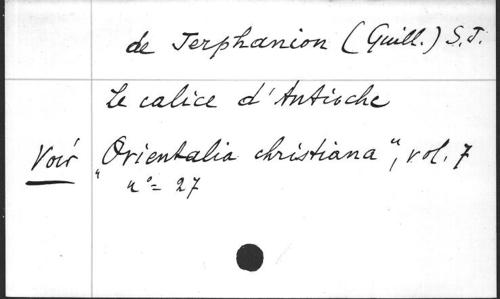 de Jerphanion (Guill.) S.J.
Le calice d'Antioche
Voir „Orientalia christiana“, vol. 7
n° = 27